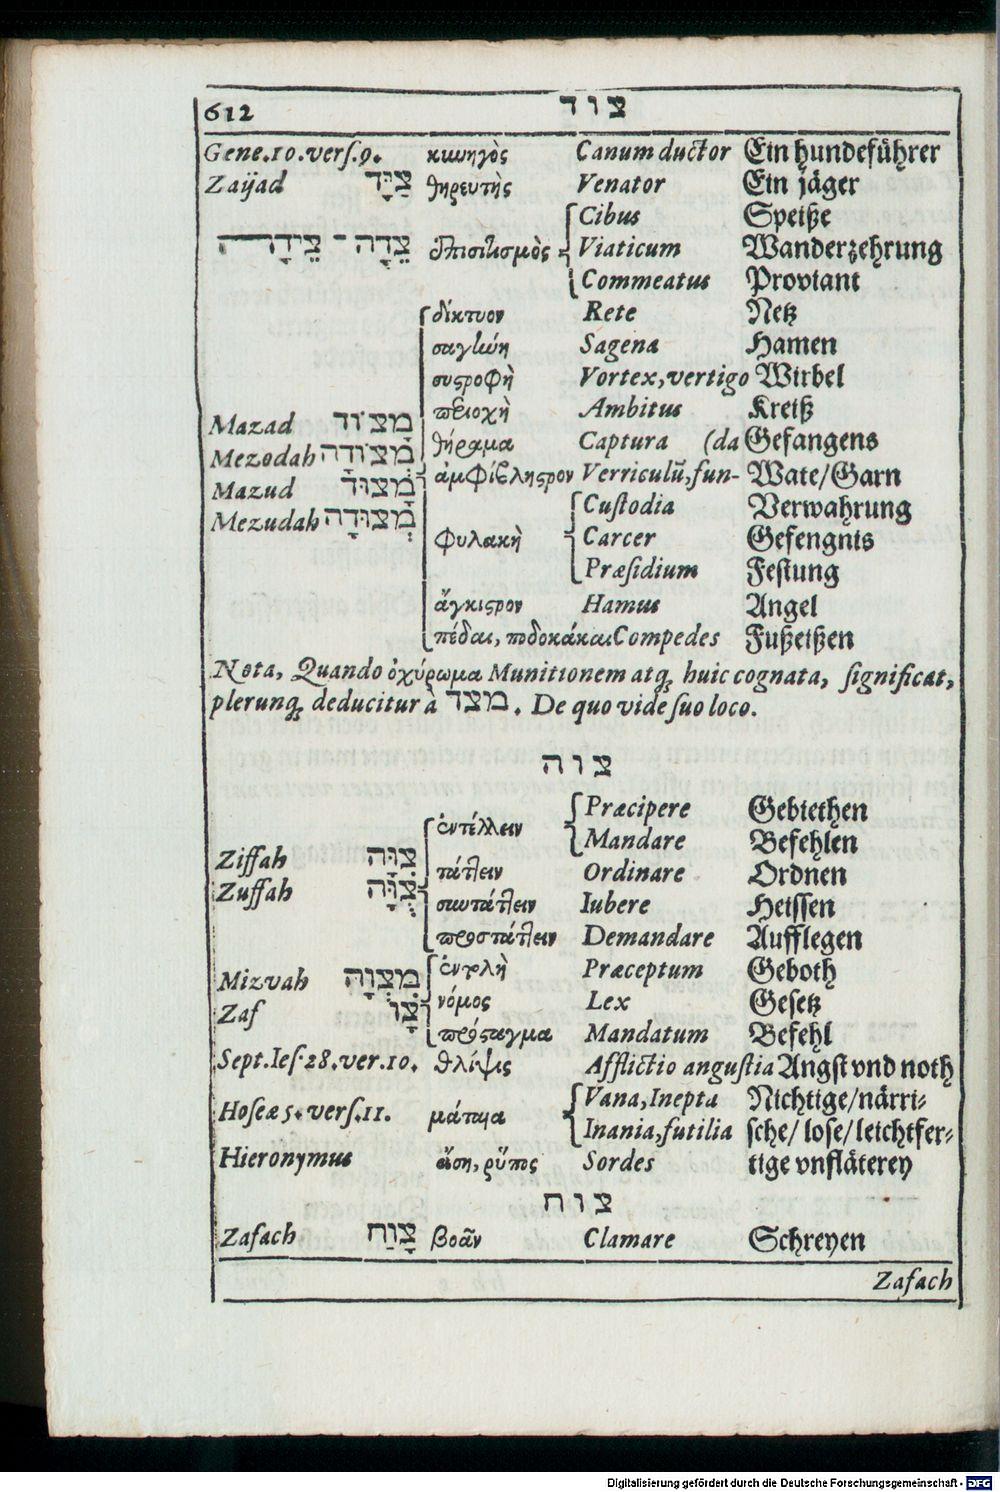 612 צוד
Gene.10.verſ.9. κυνηγὸς Canum ductor Ein hundeführer
Zaijad צַיָּד θηρευτὴς Venator Ein jäger
Cibus Speiße
צֵדָה - צֵידָה ἐπισιτισμὸς Viaticum Wanderzehrung
Commeatus Proviant
δίκτυον Rete Netz
σαγήνη Sagena Hamen
συστροφὴ Vortex, vertigo Wirbel
περιοχὴ Ambitus Kreiß
Mazad מָצוֹד
θήραμα Captura (da Gefangens
Mezodah מְצוֹדָה
ἀμφίβληστρον Verriculũ, fun- Wate/Garn
Mazud מָצוּד
Custodia Verwahrung
Mezudah מְצוּדָה
φυλακὴ Carcer Gefengnis
Præſidium Festung
ἄγκιστρον Hamus Angel
πέδαι, ποδοκάκαι Compedes Fußeißen
Nota, Quando ὀχύρωμα Munitionem atq́, huic cognata, ſignificat,
plerunq́, deducitur à מצד. De quo vide ſuo loco.
צוה
Præcipere Gebiethen
ἐντέλλειν
Mandare Befehlen
Ziffah צִוָּה
πάτειν Ordinare Ordnen
Zuffah צֻוָּה
συντάττειν Iubere Heissen
προστάττειν Demandare Aufflegen
Mizvah מִצְוָה ἐντολὴ Præceptum Geboth
Zaf צָו νόμος Lex Gesetz
πρόσταγμα Mandatum Befehl
Sept. Ieſ. 28. ver. 10. θλίψις Afflictio anguſtia Angst vnd noth
Vana, Inepta Nichtige/närri-
Hoſeæ 5. verſ. 11. μάταια
Inania, futilia sche/lose/leichtfer-
Hieronymus ἄση, ρύπος Sordes tige vnfläterey
צוח
Zafach צָוַח βοᾶν Clamare Schreyen
Zafach
Digitalisierung gefördert durch die Deutsche Forschungsgemeinschaft - DFG